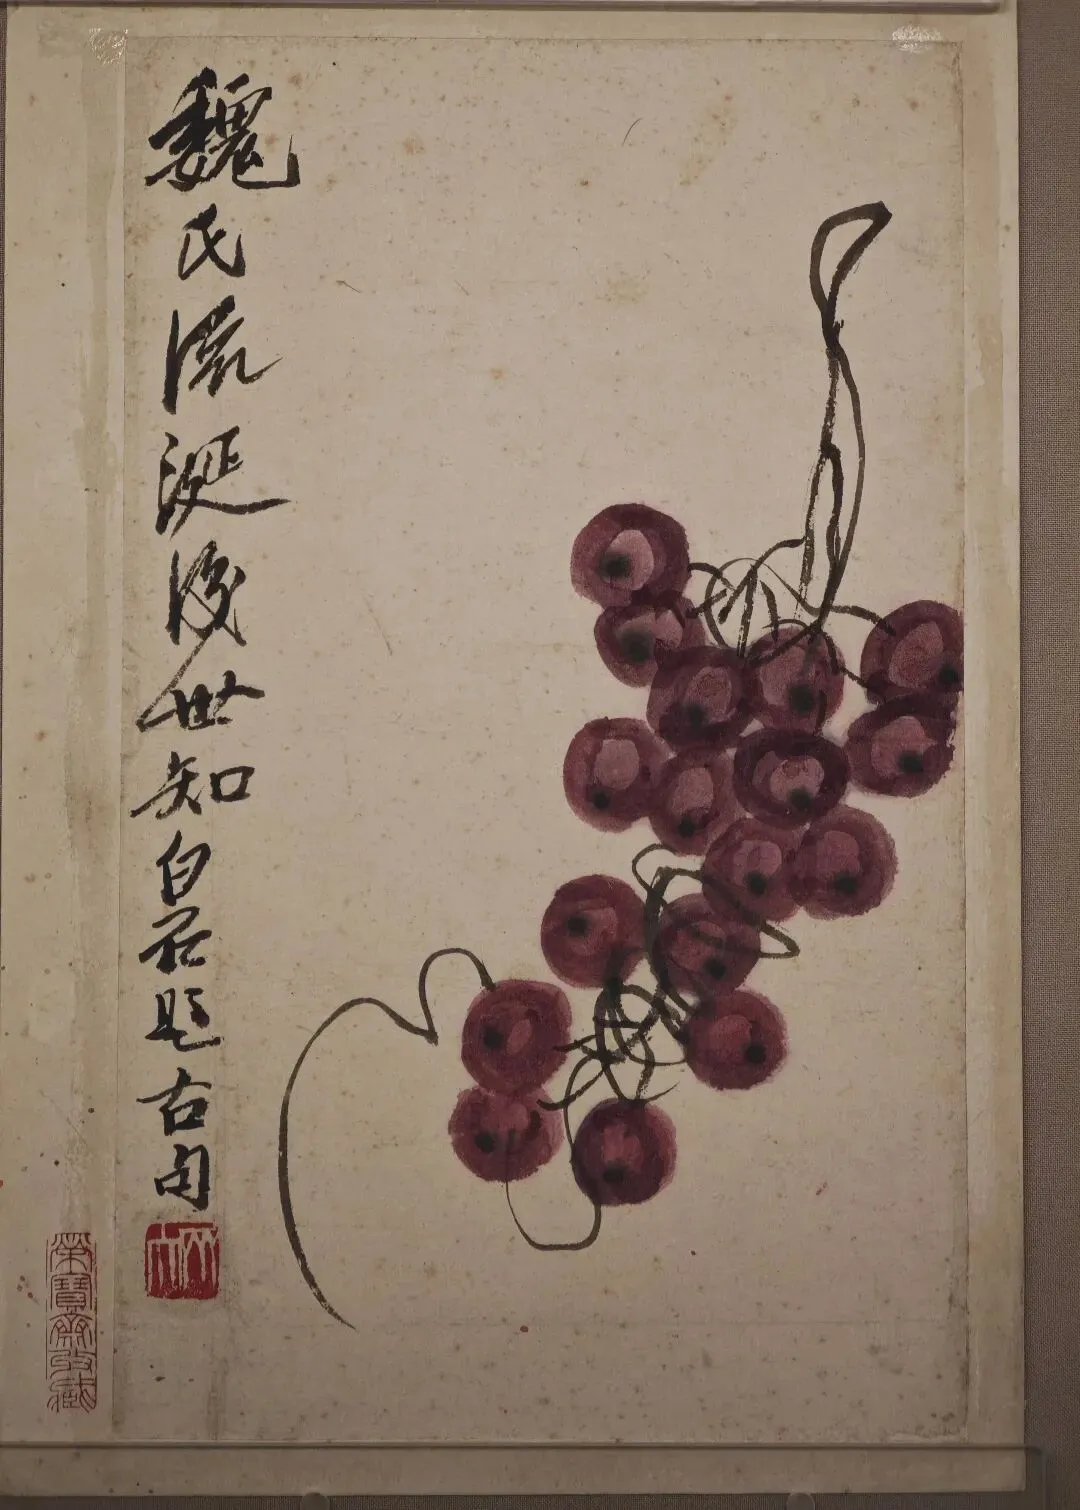 魏氏流涎後世知白石題古句
榮寶齋收藏